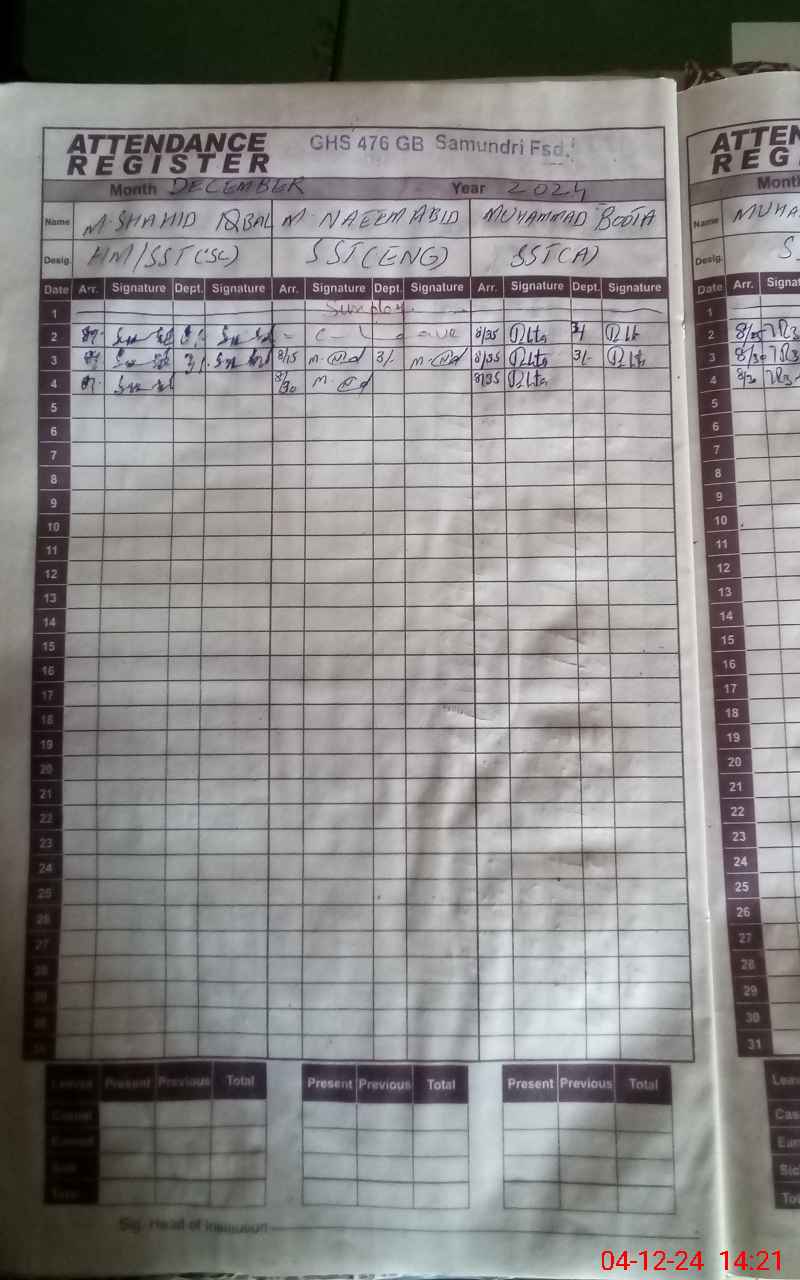 ATTENDANCE REGISTER GHS 476 GB Samundri Fsd.
Month DECEMBER Year 2024
Name M. SHAHID IQBAL M. NAEEM ABID MUHAMMAD BOOTA
Desig. HM/SST(SC) SST(ENG) SST(A)
Date Arr. Signature Dept. Signature Arr. Signature Dept. Signature Arr. Signature Dept. Signature
1 Sunday
2 8/35
3 8/15 3/- 8/35 3/-
4 8/30 8/35
5
6
7
8
9
10
11
12
13
14
15
16
17
18
19
20
21
22
23
24
25
26
27
28
Leaves Present Previous Total Present Previous Total Present Previous Total
Casual
Earned
Sig. Head of Institution
ATTEN
REG
Month
Name MUHA
Desig. S
Date Arr. Signat
1
2
3 8/30
4
5
6
7
8
9
10
11
12
13
14
15
16
17
18
19
20
21
22
23
24
25
26
27
28
29
30
31
Leav
Cas
Ear
Sic
To
04-12-24 14:21